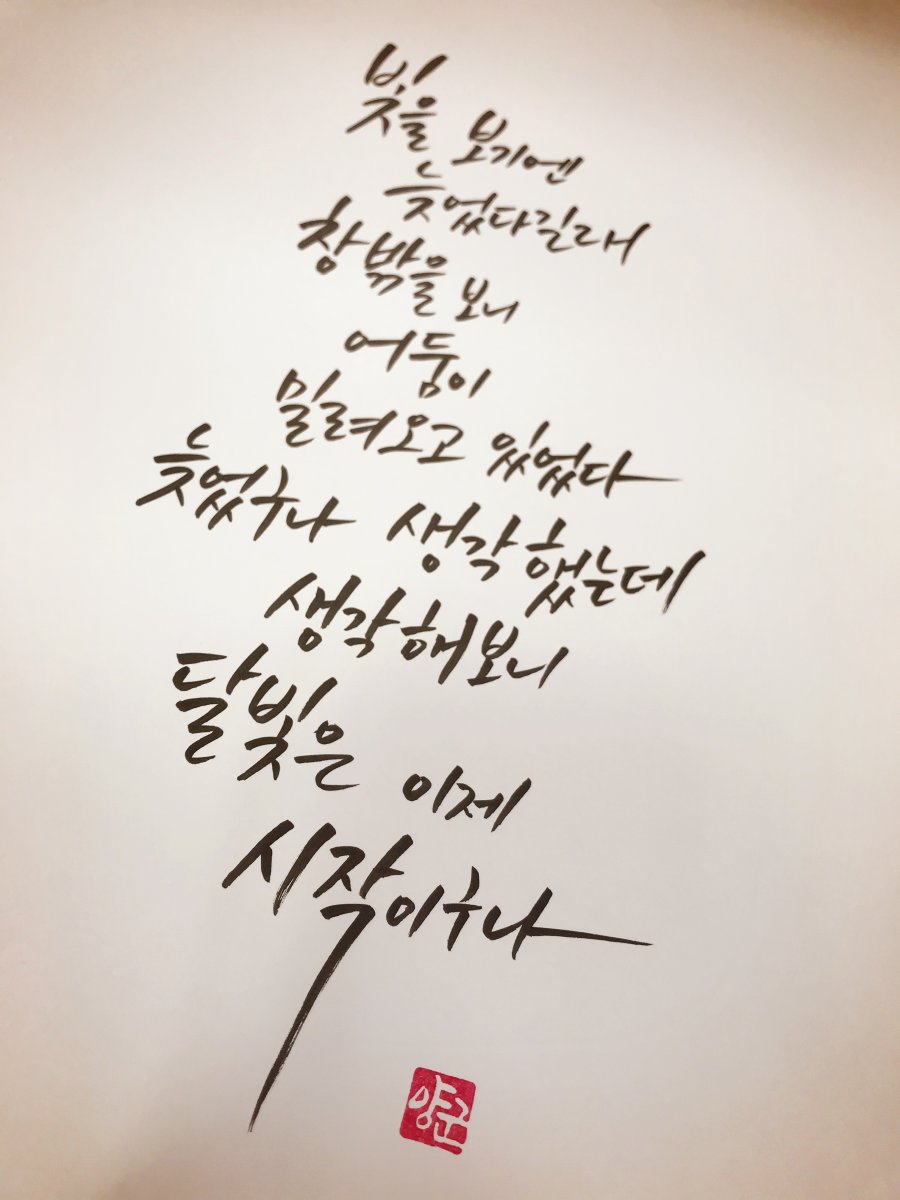 빛을 보기엔
늦었다길래
창밖을 보니
어둠이
밀려오고 있었다
늦었구나 생각했는데
생각해보니
달빛은 이제
시작이구나
양군